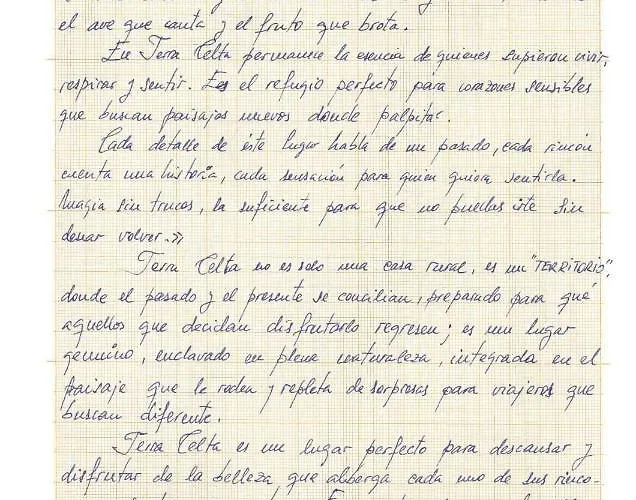 el ave que canta y el fruto que brota.
En Terra Celta permanece la esencia de quienes supieron vivir,
respirar y sentir. Es el refugio perfecto para corazones sensibles
que buscan paisajes nuevos donde palpitar.
Cada detalle de éste lugar habla de un pasado, cada rincón
cuenta una historia, cada sensación para quien quiera sentirla.
Magia sin trucos, la suficiente para que no puedas irte sin
desear volver.»
Terra Celta no es solo una casa rural, es un "TERRITORIO",
donde el pasado y el presente se concilian, preparado para qué
aquellos que decidan disfrutarlo regresen; es un lugar
genuino, enclavado en plena naturaleza, integrada en el
paisaje que le rodea y repleta de sorpresas para viajeros que
buscan diferente.
Terra Celta es un lugar perfecto para descansar y
disfrutar de la belleza, que alberga cada uno de sus rinco-